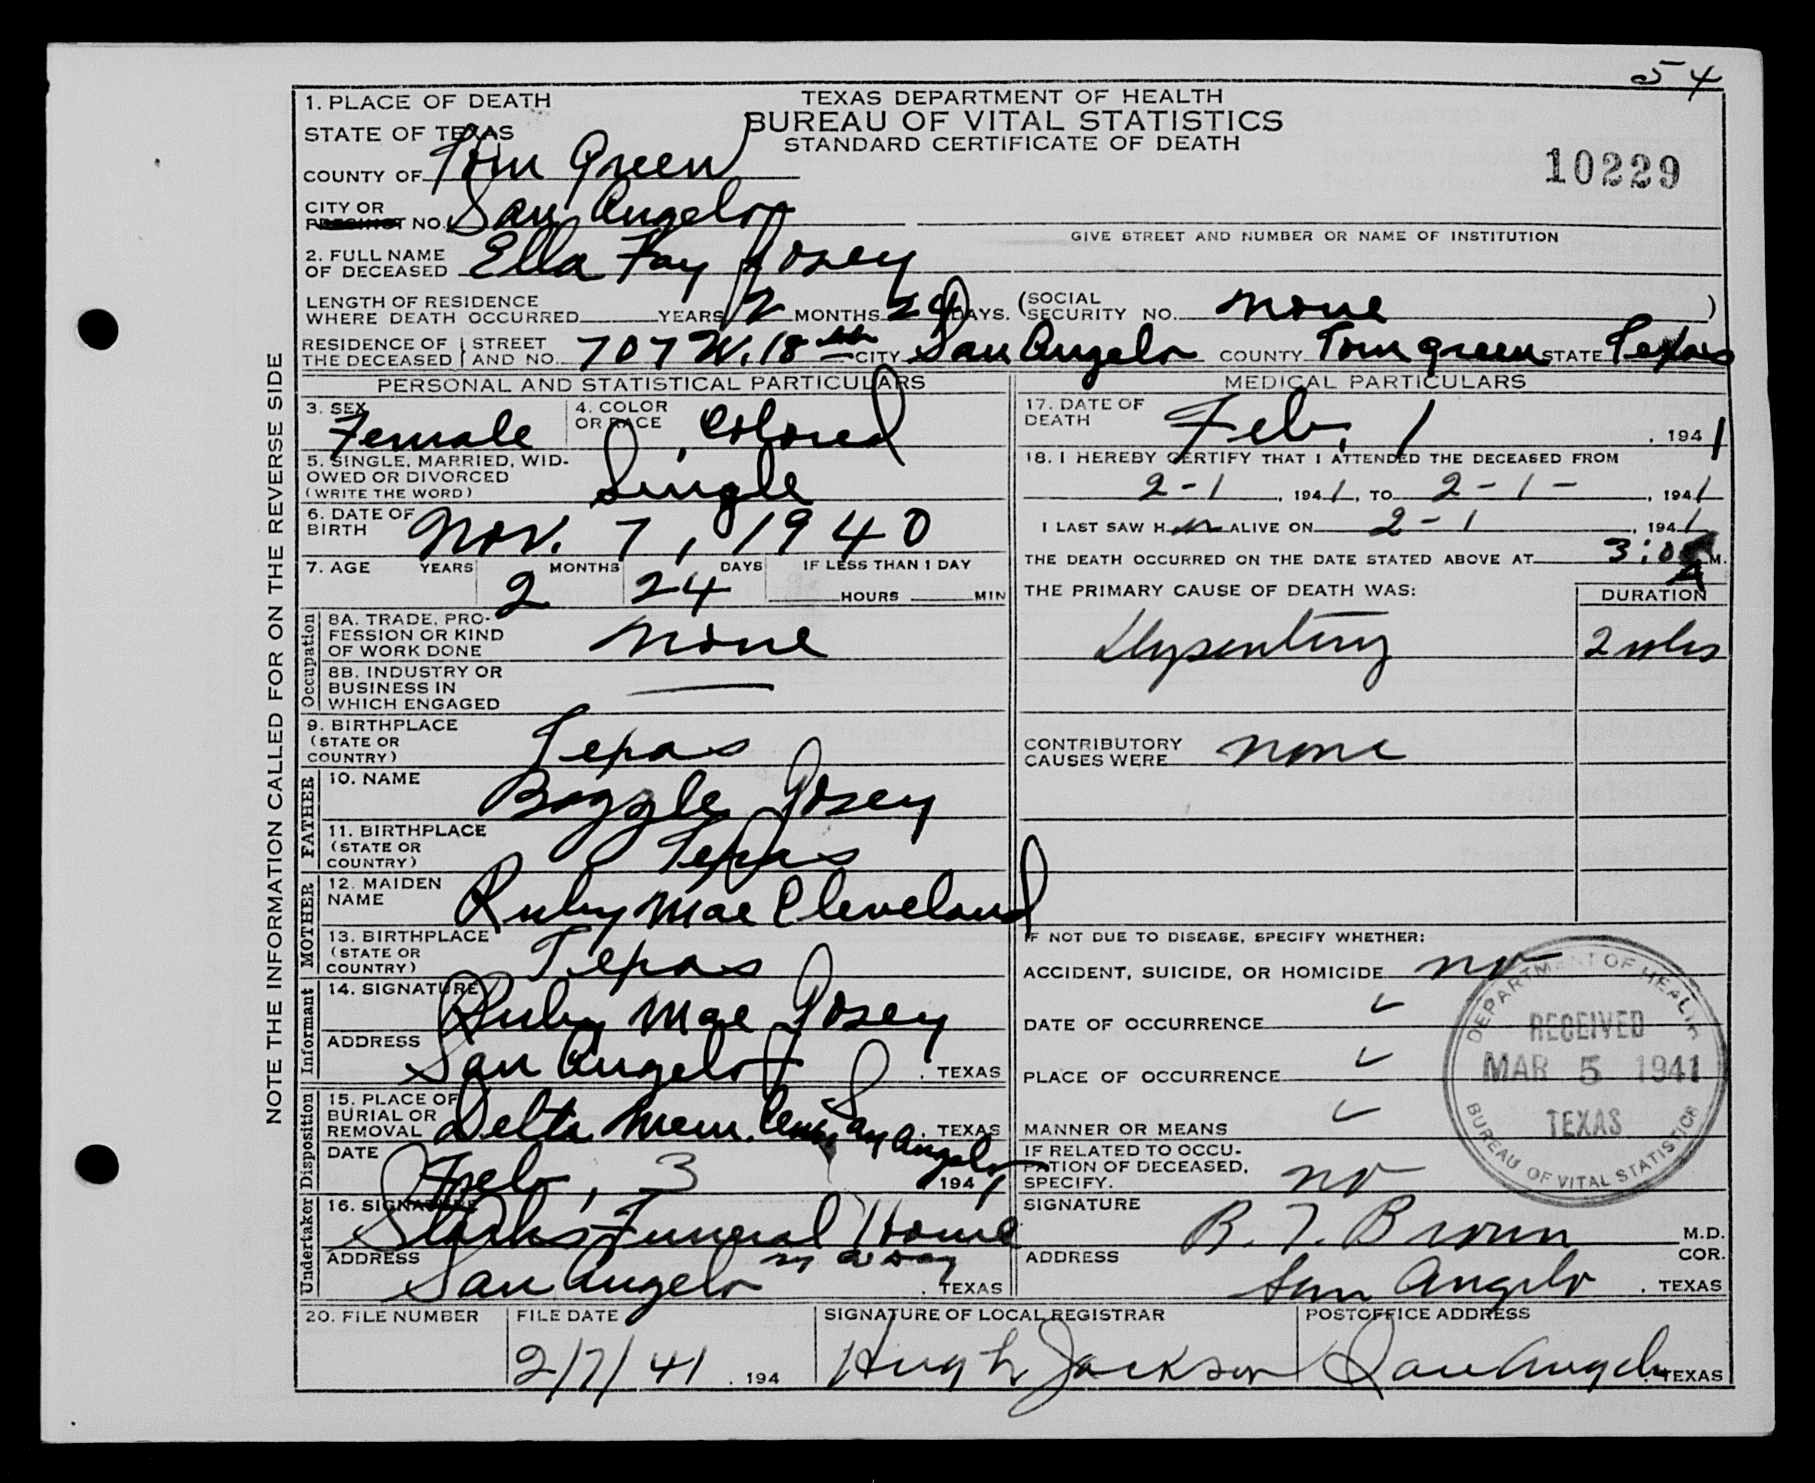 54
1. PLACE OF DEATH
TEXAS DEPARTMENT OF HEALTH
STATE OF TEXAS
BUREAU OF VITAL STATISTICS
STANDARD CERTIFICATE OF DEATH
COUNTY OF Tom Green
10229
CITY OR PRECINCT NO. San Angelo
GIVE STREET AND NUMBER OR NAME OF INSTITUTION
2. FULL NAME OF DECEASED Ella Fay Josey
LENGTH OF RESIDENCE WHERE DEATH OCCURRED YEARS 2 MONTHS 24 DAYS. (SOCIAL SECURITY NO. none)
RESIDENCE OF THE DECEASED STREET AND NO. 707 W. 18th CITY San Angelo COUNTY Tom Green STATE Texas
NOTE THE INFORMATION CALLED FOR ON THE REVERSE SIDE
PERSONAL AND STATISTICAL PARTICULARS
3. SEX Female 4. COLOR OR RACE Colored
5. SINGLE, MARRIED, WIDOWED OR DIVORCED (WRITE THE WORD) Single
6. DATE OF BIRTH Nov. 7, 1940
7. AGE YEARS 2 MONTHS 24 DAYS IF LESS THAN 1 DAY HOURS MIN
Occupation
8A. TRADE, PROFESSION OR KIND OF WORK DONE none
8B. INDUSTRY OR BUSINESS IN WHICH ENGAGED —
9. BIRTHPLACE (STATE OR COUNTRY) Texas
FATHER
10. NAME Bozzle Josey
11. BIRTHPLACE (STATE OR COUNTRY) Texas
MOTHER
12. MAIDEN NAME Ruby Mae Cleveland
13. BIRTHPLACE (STATE OR COUNTRY) Texas
Informant
14. SIGNATURE Ruby Mae Josey
ADDRESS San Angelo, TEXAS
Disposition
15. PLACE OF BURIAL OR REMOVAL Delta Mem. San Angelo, TEXAS
DATE Feb. 3 1941
Undertaker
16. SIGNATURE Funeral Home
ADDRESS San Angelo, TEXAS
MEDICAL PARTICULARS
17. DATE OF DEATH Feb. 1, 1941
18. I HEREBY CERTIFY THAT I ATTENDED THE DECEASED FROM
2-1, 1941, TO 2-1-, 1941
I LAST SAW H ALIVE ON 2-1, 1941
THE DEATH OCCURRED ON THE DATE STATED ABOVE AT A M.
THE PRIMARY CAUSE OF DEATH WAS: DURATION
Dysentery 2 wks
CONTRIBUTORY CAUSES WERE none
IF NOT DUE TO DISEASE, SPECIFY WHETHER:
ACCIDENT, SUICIDE, OR HOMICIDE no
DATE OF OCCURRENCE
PLACE OF OCCURRENCE
MANNER OR MEANS
IF RELATED TO OCCUPATION OF DECEASED, SPECIFY. no
SIGNATURE B. T. Brown M.D. COR.
ADDRESS San Angelo, TEXAS
DEPARTMENT OF HEALTH
RECEIVED
MAR 5 1941
TEXAS
BUREAU OF VITAL STATISTICS
20. FILE NUMBER FILE DATE 2/7/41, 194 SIGNATURE OF LOCAL REGISTRAR Hugh Jackson POSTOFFICE ADDRESS San Angelo, TEXAS